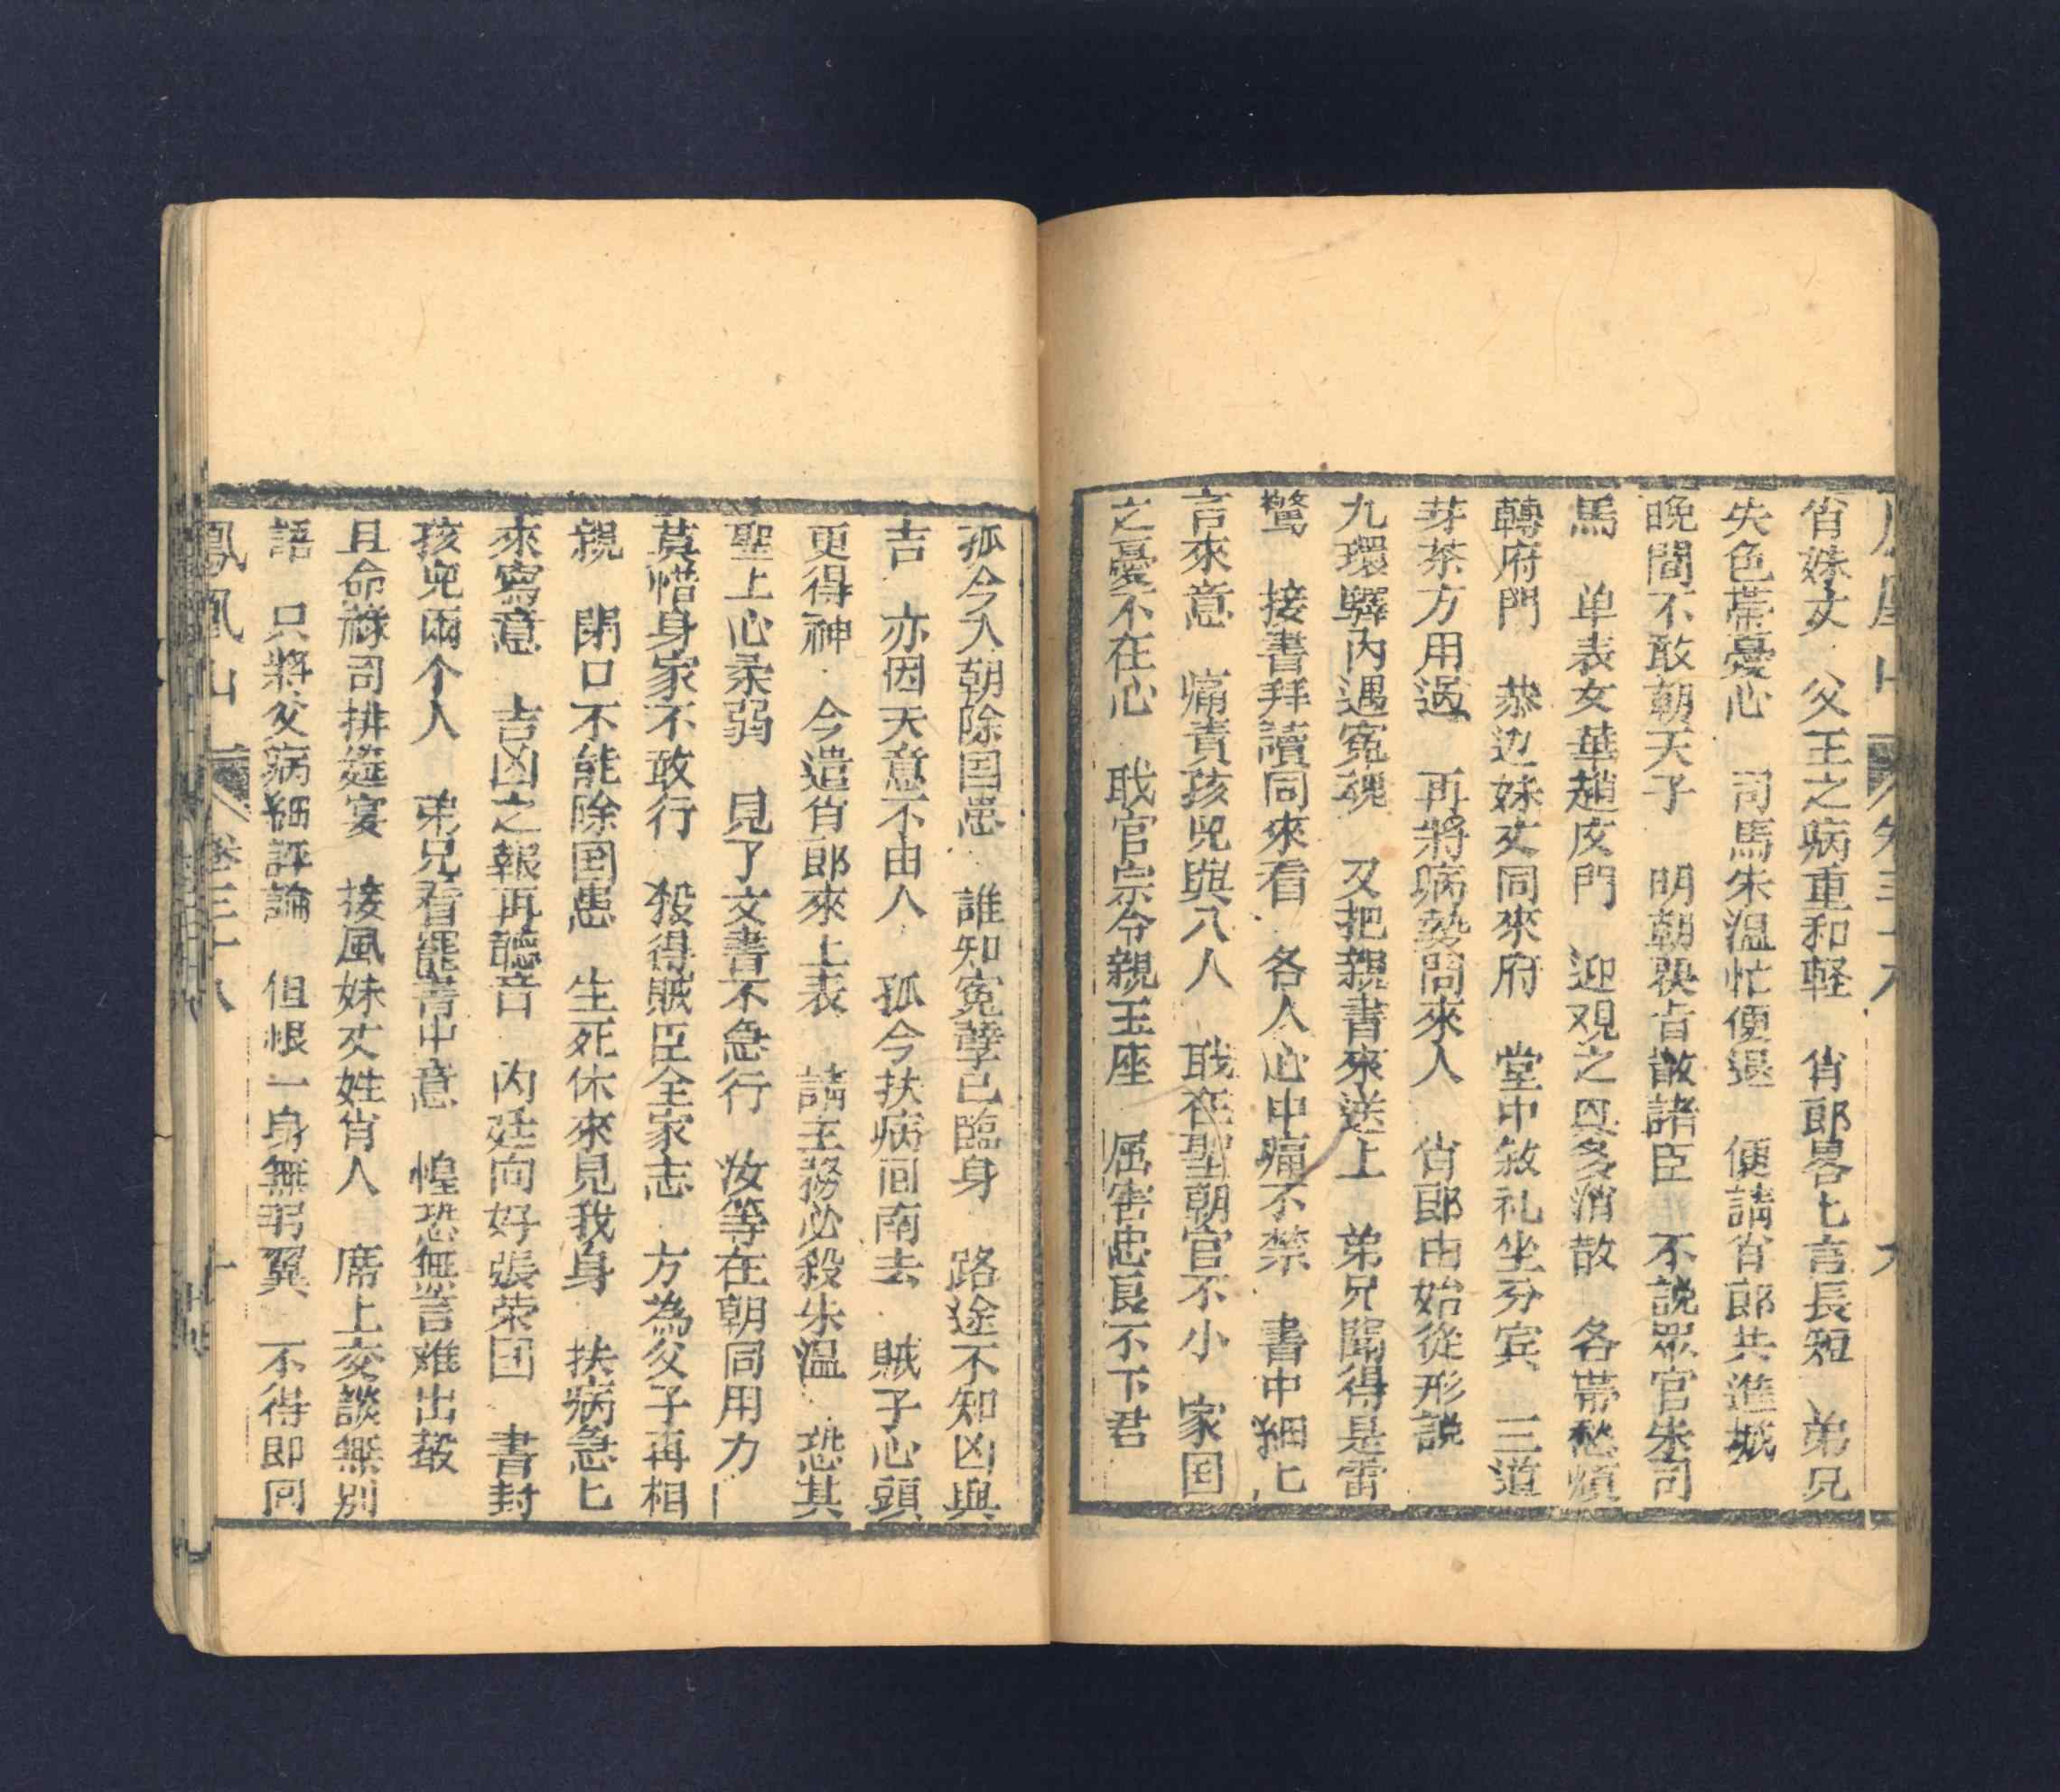 省妹丈　父王之病重和軽　肖郎畧七言長短　弟兄
失色帶憂心　司馬朱温忙便退　便請肖郎共進城
晚間不敢朝天子　明朝殃㫖散諸臣　不說眾官朱司
馬　单表女華趙皮門　迎观之具多消散　各帶愁煩
轉府門　恭迎妹丈同來府　堂中敘礼坐分宾　三道
芽茶方用過　再將病勢問來人　肖郎由始從形説
九環驛内遇寃魂　又把親書來送上　弟兄聞得是雷
驚　接書拜讀同來看　各人心中痛不禁　書中細七
言來意　痛責孩兒與八人　戝在聖朝官不小　家国
之憂不在心　戝官宗令親王座　屈害忠良不下君
孤今入朝除国患　誰知寃孽已臨身　路途不知凶與
吉　亦因天意不由人　孤今扶病回南去　賊子心頭
更得神　今遣肖郎來上表　請主務必殺朱温　恐其
聖上心柔弱　見了文書不急行　汝等在朝同用力
莫惜身家不敢行　殺得賊臣全家志　方為父子再相
親　閉口不能除国患　生死休來見我身　扶病急七
來寫意　吉凶之報再聽音　内廷向好張荣国　書封
孩兒兩个人　弟兄看罷書中意　惶恐無言难出聲
且命祿司排筵宴　接風妹丈姓肖人　席上交談無別
語　只將父病細評論　但恨一身無羽翼　不得即囘
鳳凰山　卷三十八　十